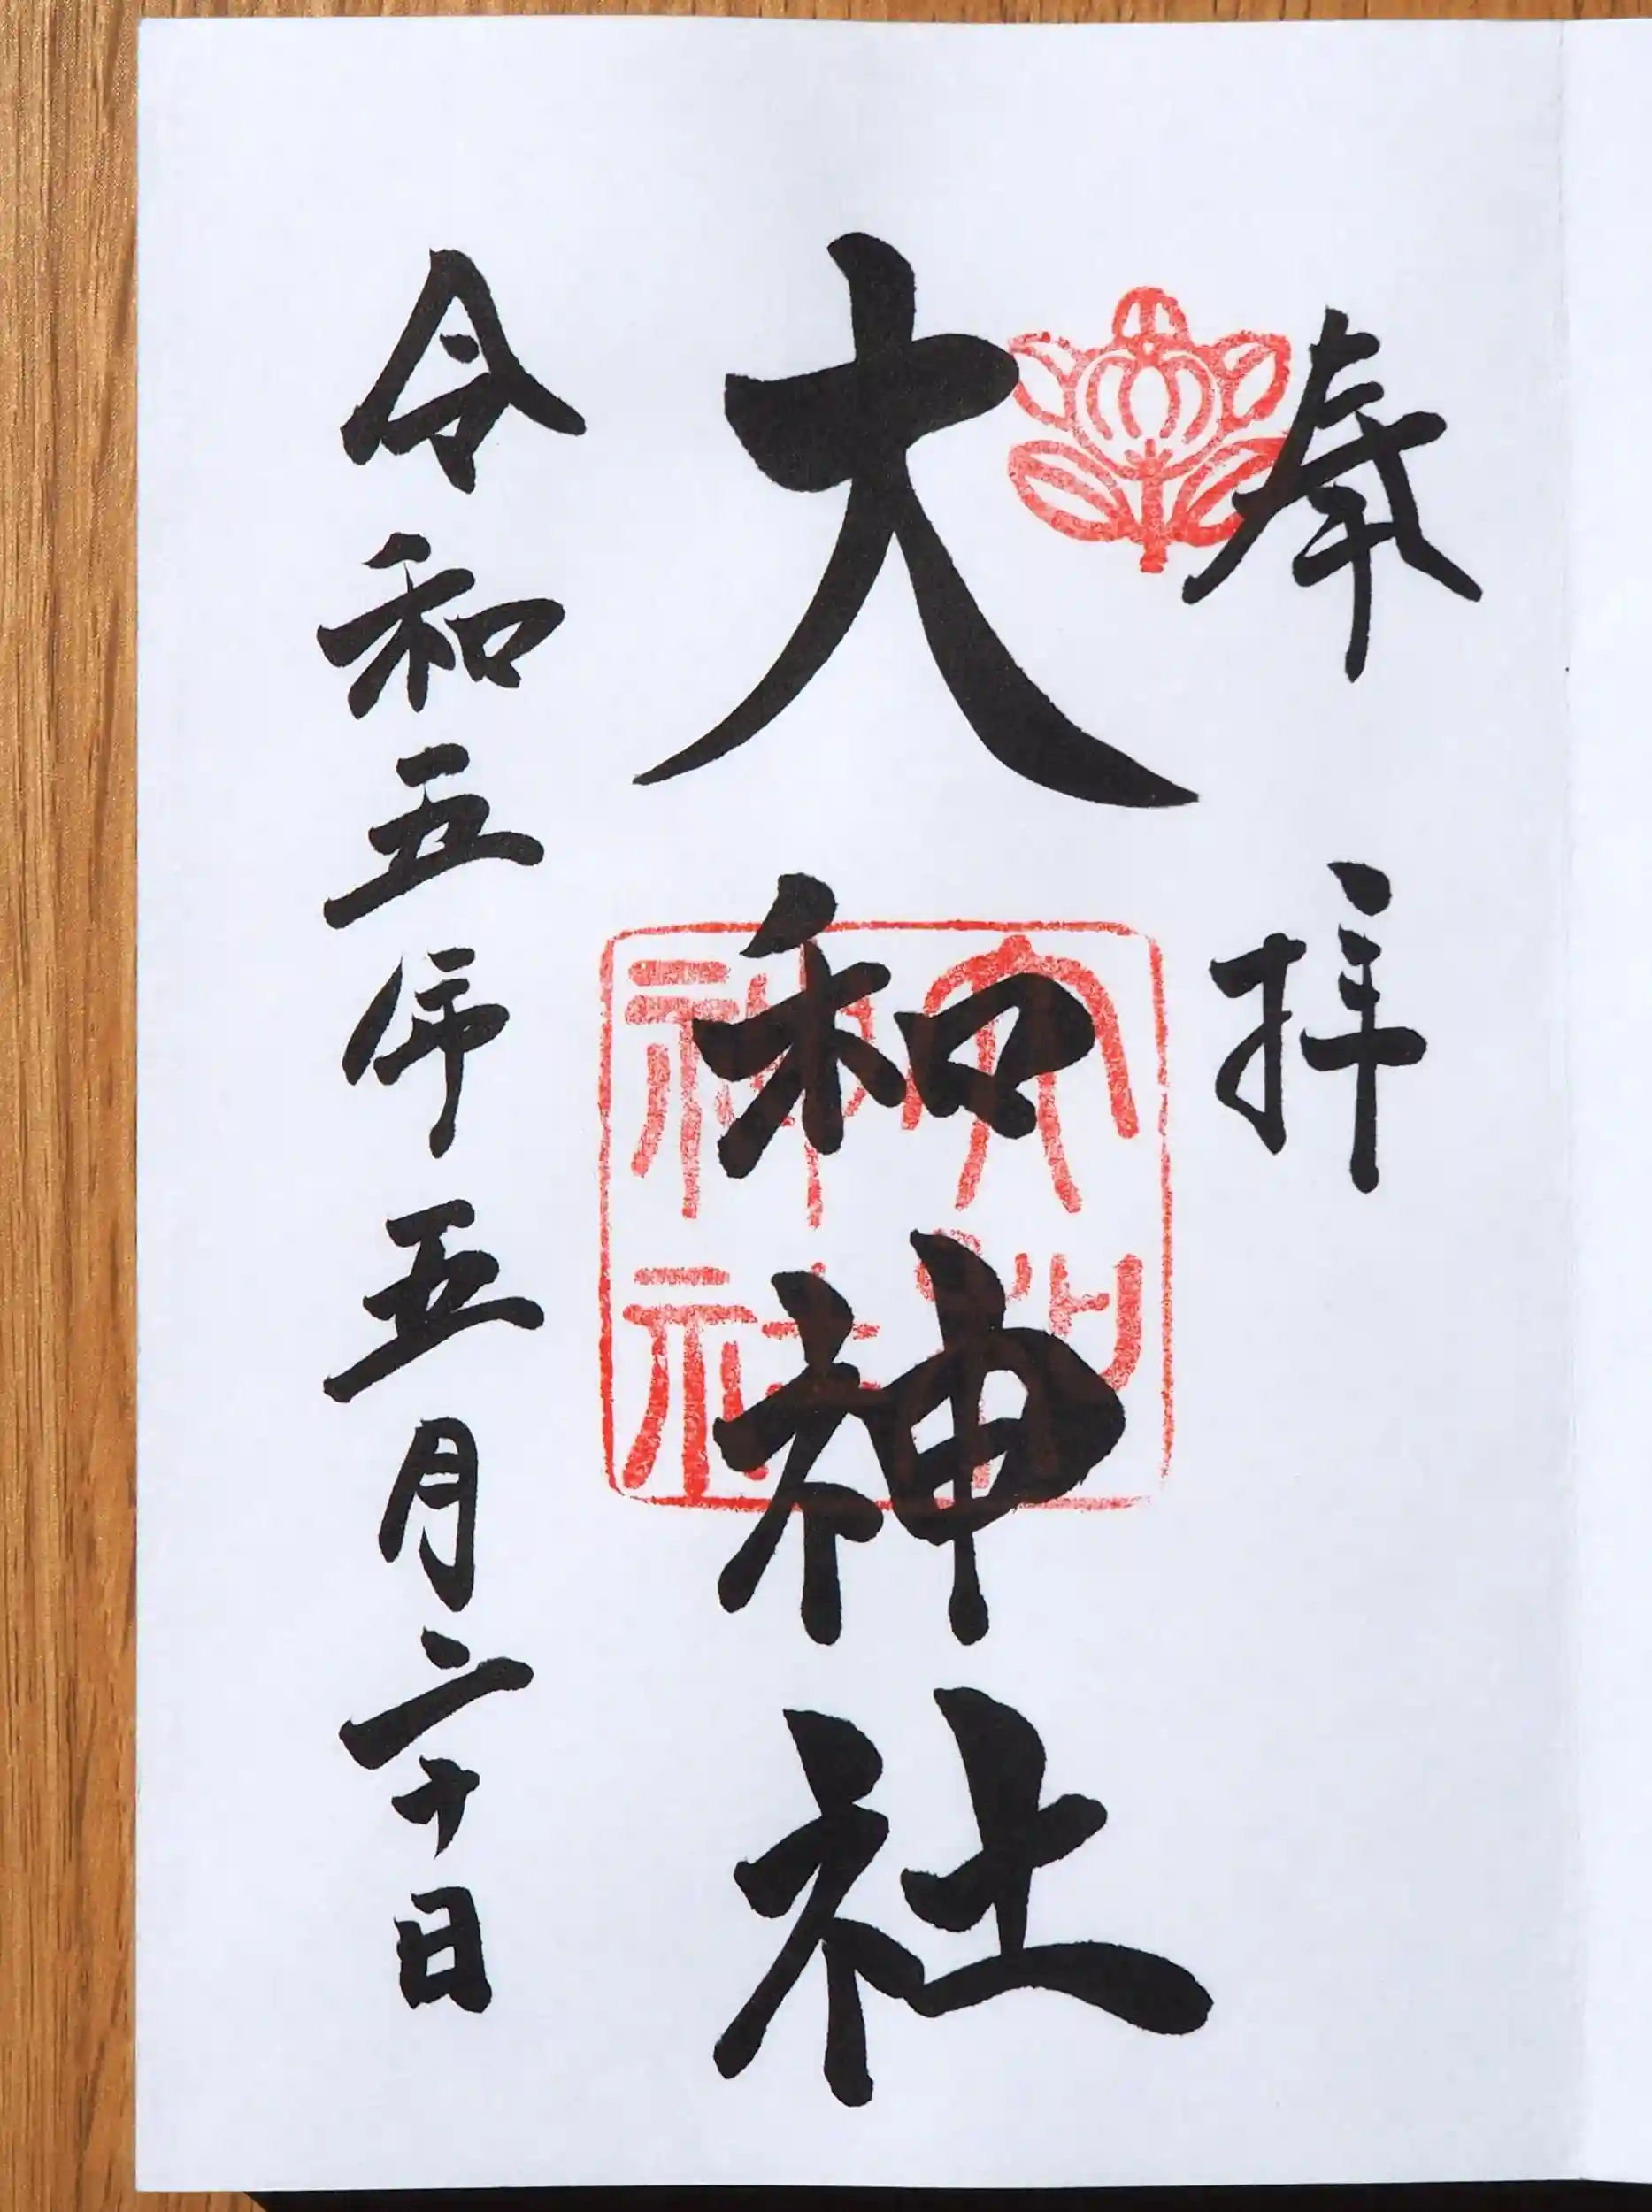 奉拝
大和神社
令和五年五月二十日
大
神社